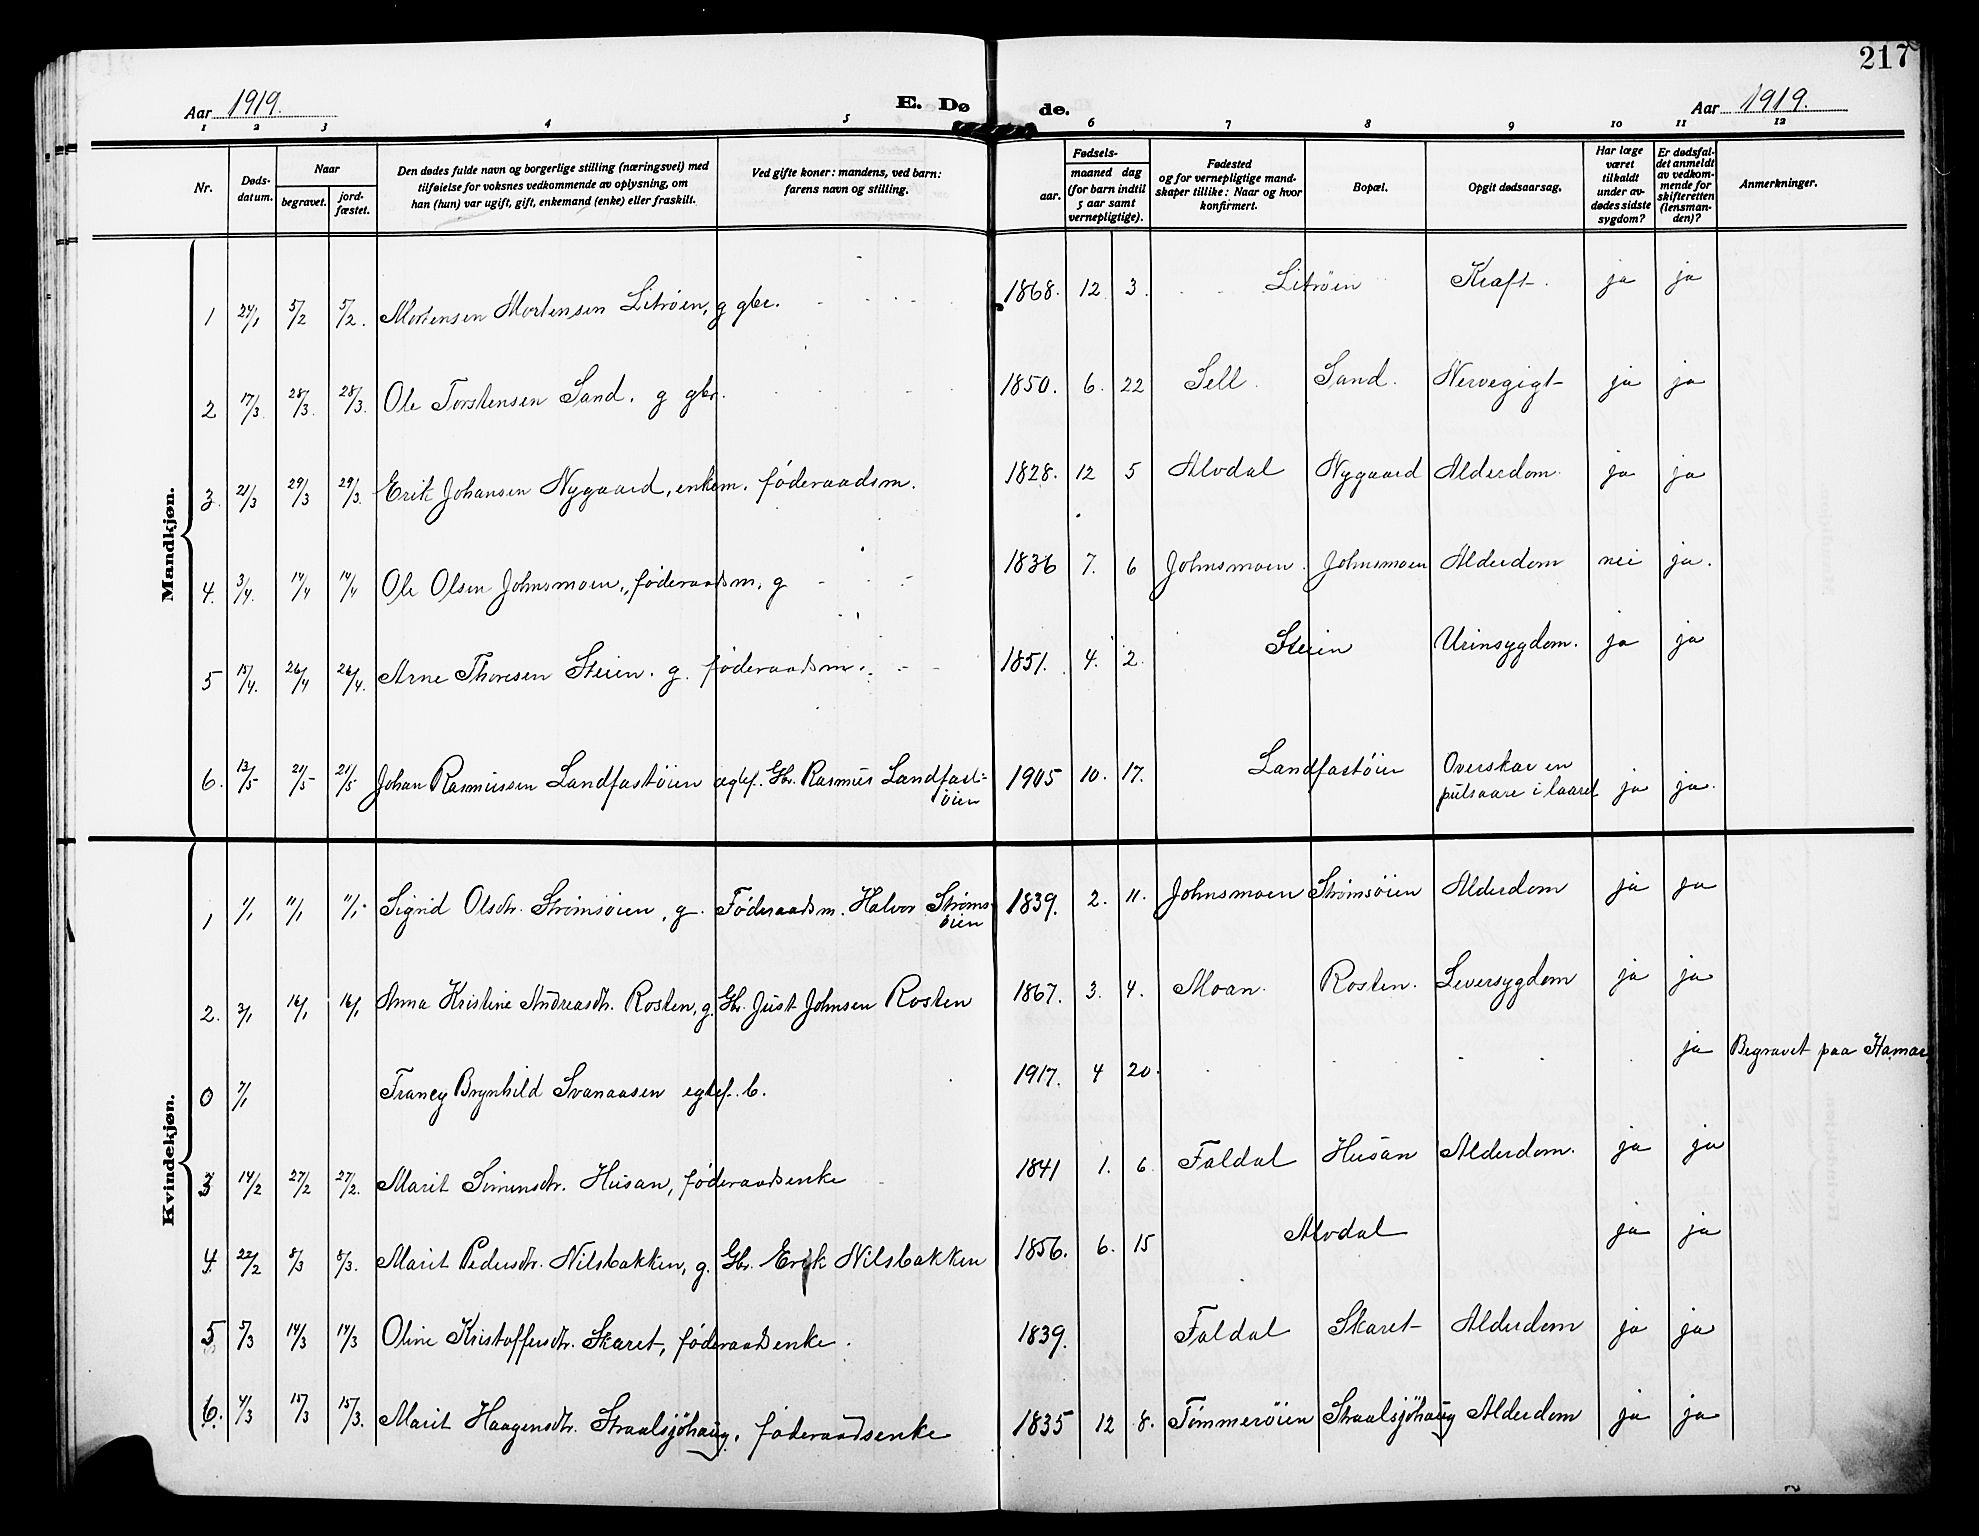 217
Aar 1919. E. Dø de. Aar 1919.
1 2 3 4 5 6 7 8 9 10 11 12
Nr.
Døds-
datum.
Naar
begravet.
jord-
fæstet.
Den dødes fulde navn og borgerlige stilling (næringsvei) med
tilføielse for voksnes vedkommende av oplysning, om
han (hun) var ugift, gift, enkemand (enke) eller fraskilt.
Ved gifte koner: mandens, ved barn:
farens navn og stilling.
Fødsels-
aar.
maaned dag
(for barn indtil
5 aar samt
vernepligtige).
Fødested
og for vernepligtige mand-
skaper tillike: Naar og hvor
konfirmert.
Bopæl.
Opgit dødsaarsag.
Har læge
været
tilkaldt
under av-
dødes sidste
sygdom?
Er dødsfal-
det anmeldt
av vedkom-
mende for
skifteretten
(lensman-
den)?
Anmerkninger.
Mandkjøn.
1 24/1 5/2 5/2. Mortensen Mortensen Litrøen, g gbr. 1868. 12 3. Litrøen Kraft. ja ja
2 17/3 28/3. 28/3. Ole Torstensen Sand. g gbr. 1850. 6. 22 Sell. Sand. Nervegigt ja ja
3. 21/3 29/3 29/3. Erik Johansen Nygaard, enkem. føderaadsm. 1828. 12 5 Alvdal Nygaard Alderdom. ja ja
4. 3/4. 14/4 14/4 Ole Olsen Johnsmoen, føderaadsm. g 1836 7. 6 Johnsmoen. Johnsmoen Alderdom nei ja.
5 15/4. 26/4 26/4. Arne Thoresen Steien. g. føderaadsm. 1851. 4. 2. Steien Urinsygdom. ja ja
6. 13/5 21/5 21/5 Johan Rasmussen Landfastøien egtef. Gbr. Rasmus Landfast=
øien 1905 10. 17. Landfastøien Overskar en
pulsaare i laaret ja ja.
Kvindekjøn.
1 1/1 11/1 11/1 Sigrid Olsdtr. Strømsøien, g. Føderaadsm. Halvor Strøms
øien 1839. 2. 11. Johnsmoen Strømsøien Alderdom ja ja
2. 3/1 16/1 16/1 Anna Kristine Andreasdtr. Rosten, g. Gbr. Just Johnsen Rosten 1867. 3. 4. Moan. Rosten. Leversygdom ja ja
0 7/1 Francy Brynhild Svanaasen egtef. b. 1917. 4 20. ja Begravet paa Hamar
3 14/2 27/2 27/2. Marit Simensdtr. Husan, føderaadsenke 1841 1. 6. Faldal Husan Alderdom. ja ja
4 22/2 8/3 8/3. Marit Pedersdtr. Nilsbakken, g. Gbr. Erik Nilsbakken 1856. 6. 15 Alvdal ja ja
5 5/3 14/3 14/3 Oline Kristoffersdtr. Skaret, føderaadsenke. 1839. Faldal Skaret Alderdom ja ja
6. 4/3 15/3 15/3. Marit Haagensdtr. Straalsjøhaug, føderaadsenke 1835 12 8. Tømmerøien Straalsjøhaug Alderdom ja ja